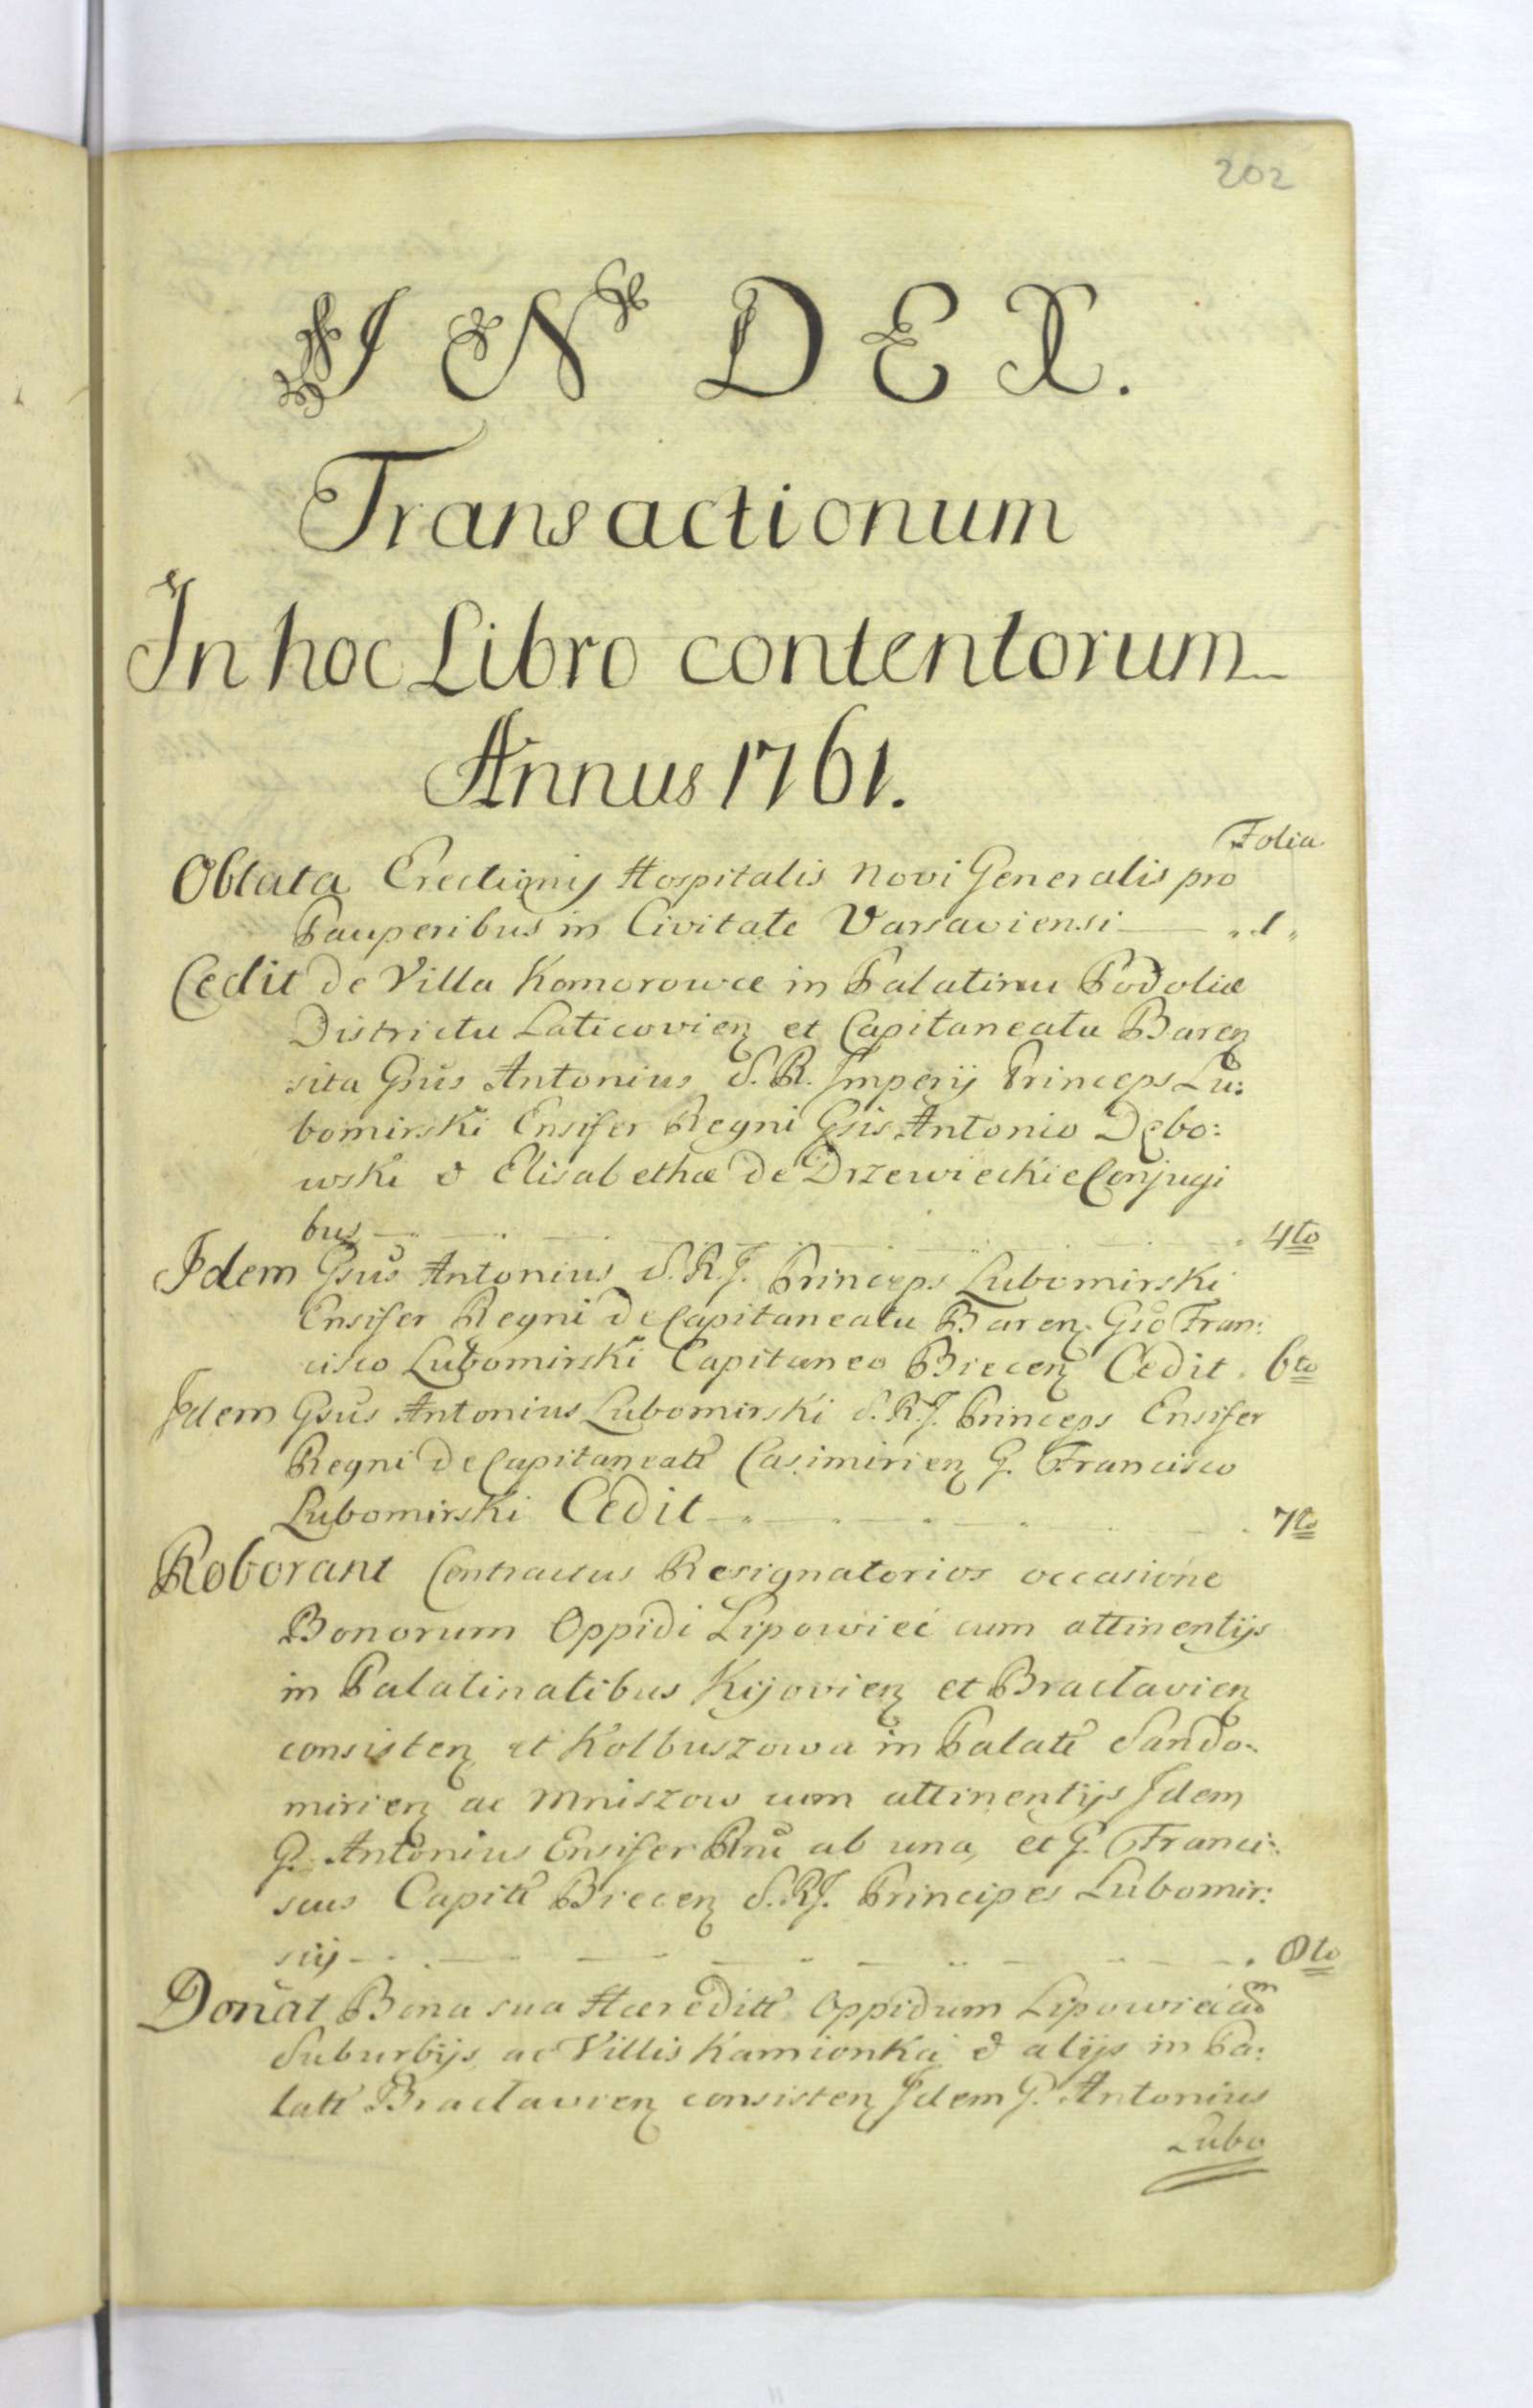 202
INDEX.
Transactionum
In hoc Libro contentorum
Annus 1761.
Folia
Oblata Erectionis Hospitalis Novi Generalis pro
Pauperibus in Civitate Varsaviensi — „1„
Cedit de Villa Komorowce in Palatinu Podoliæ
Districtu Laticovien et Capitaneatu Baren
sita Gsus Antonius S. R. Imperij Princeps Lu:
bomirski Ensifer Regni Gsis Antonio Dębo:
wski & Elisabethæ de Drzewieckie Conjugi
bus — 4to
Idem Gsus Antonius S. R. J. Princeps Lubomirski
Ensifer Regni de Capitaneatu Baren. Gso Fran:
cisco Lubomirski Capitaneo Biecen Cedit. 6to
Idem Gsus Antonius Lubomirski S. R. J. Princeps Ensifer
Regni de Capitaneatu Casimirien G. Francisco
Lubomirski Cedit — 7to
Roborant Contractus Resignatorios occasione
Bonorum Oppidi Lipowiec cum attinentijs
in Palatinatibus Kijovien et Braclavien
consisten et Kolbuszowa in Palatt Sando-
mirien ac Mniszow cum attinentijs Idem
G. Antonius Ensifer Rni ab una, et G. Franci:
scus Capitt Biecen S. R. J. Principes Lubomir:
scij — 8to
Donat Bona sua Hæreditt Oppidum Lipowiec cum
Suburbijs, ac Villis Kamionka & alijs in Pa:
latt Braclavien consisten Idem G. Antonius
Lubo